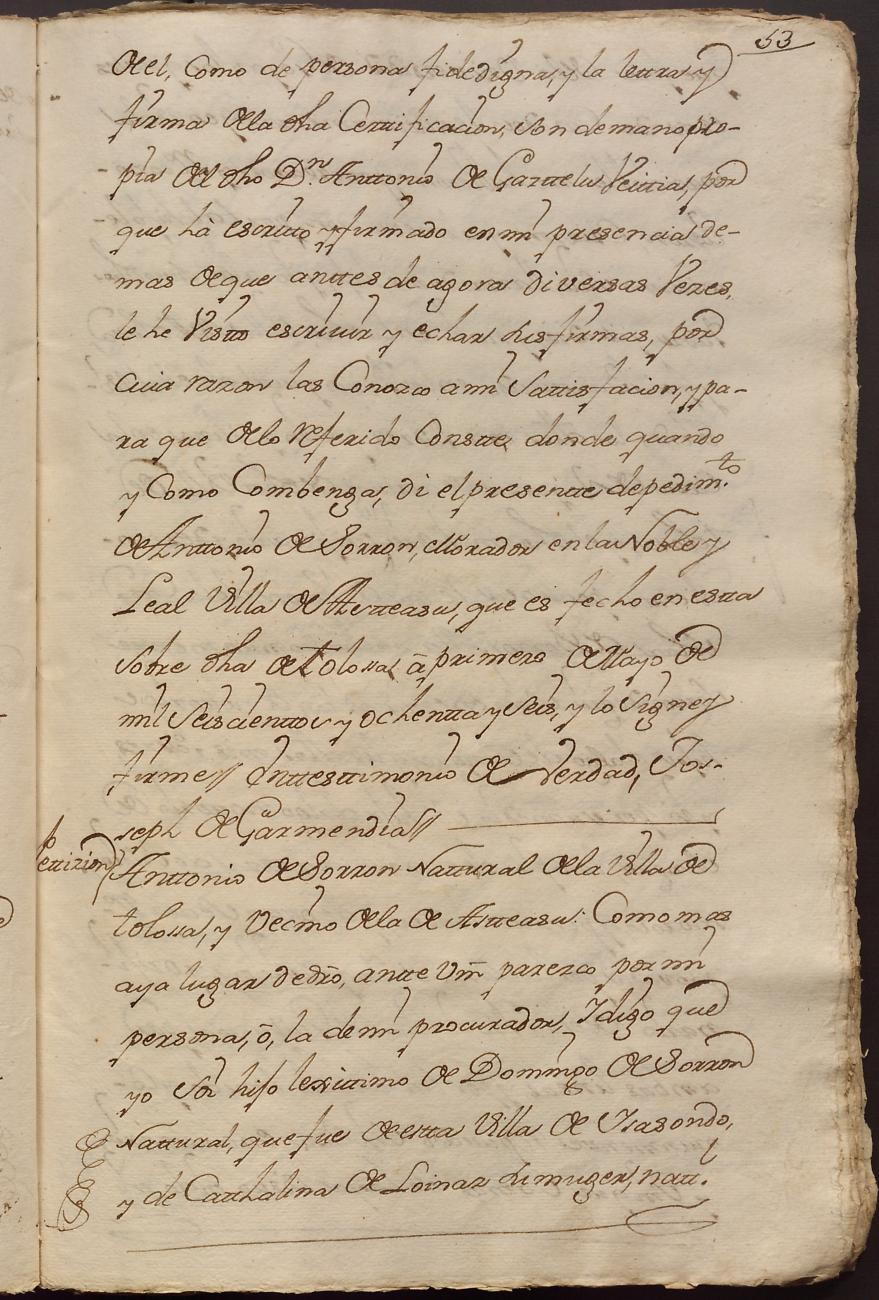 53
de el, como de persona fidedigna, y la lettra y
firma de la dha Certtificacion, son de mano pro-
pia del dho Dn. Anttonio de Garttelu Veittia, por
que hà escritto y firmado en mi presencia de-
mas de que anttes de agora diversas Vezes,
le he Vistto escrivir y echar sus firmas, por
cuia razon las Conozco a mi Sattisfacion, y pa-
ra que de lo Referido Constte, donde quando
y Como Combenga, di el presentte de pedimto.
de Anttonio de Sorron, Morador en la Noble y
Leal Villa de Astteasu, que es fecho en estta
sobre dha de tolossa, â primero de Mayo de
mil Seiscienttos y ochentta y Seis, y lo Signe y
firme // En ttesttimonio de Verdad, Jos-
seph de Garmendia //
Pettizion
Anttonio de Sorron Nattural de la Villa de
tolossa, y Vecino de la de Astteasu: Como mas
aya lugar de dro, antte Vm parezco por mi
persona, ò, la de mi procurador, Y digo que
yo Soi hijo lexittimo de Domingo de Sorron
Nattural, que fue de estta Villa de Ysasondo,
y de Catthalina de Loinaz su muger, natt.l